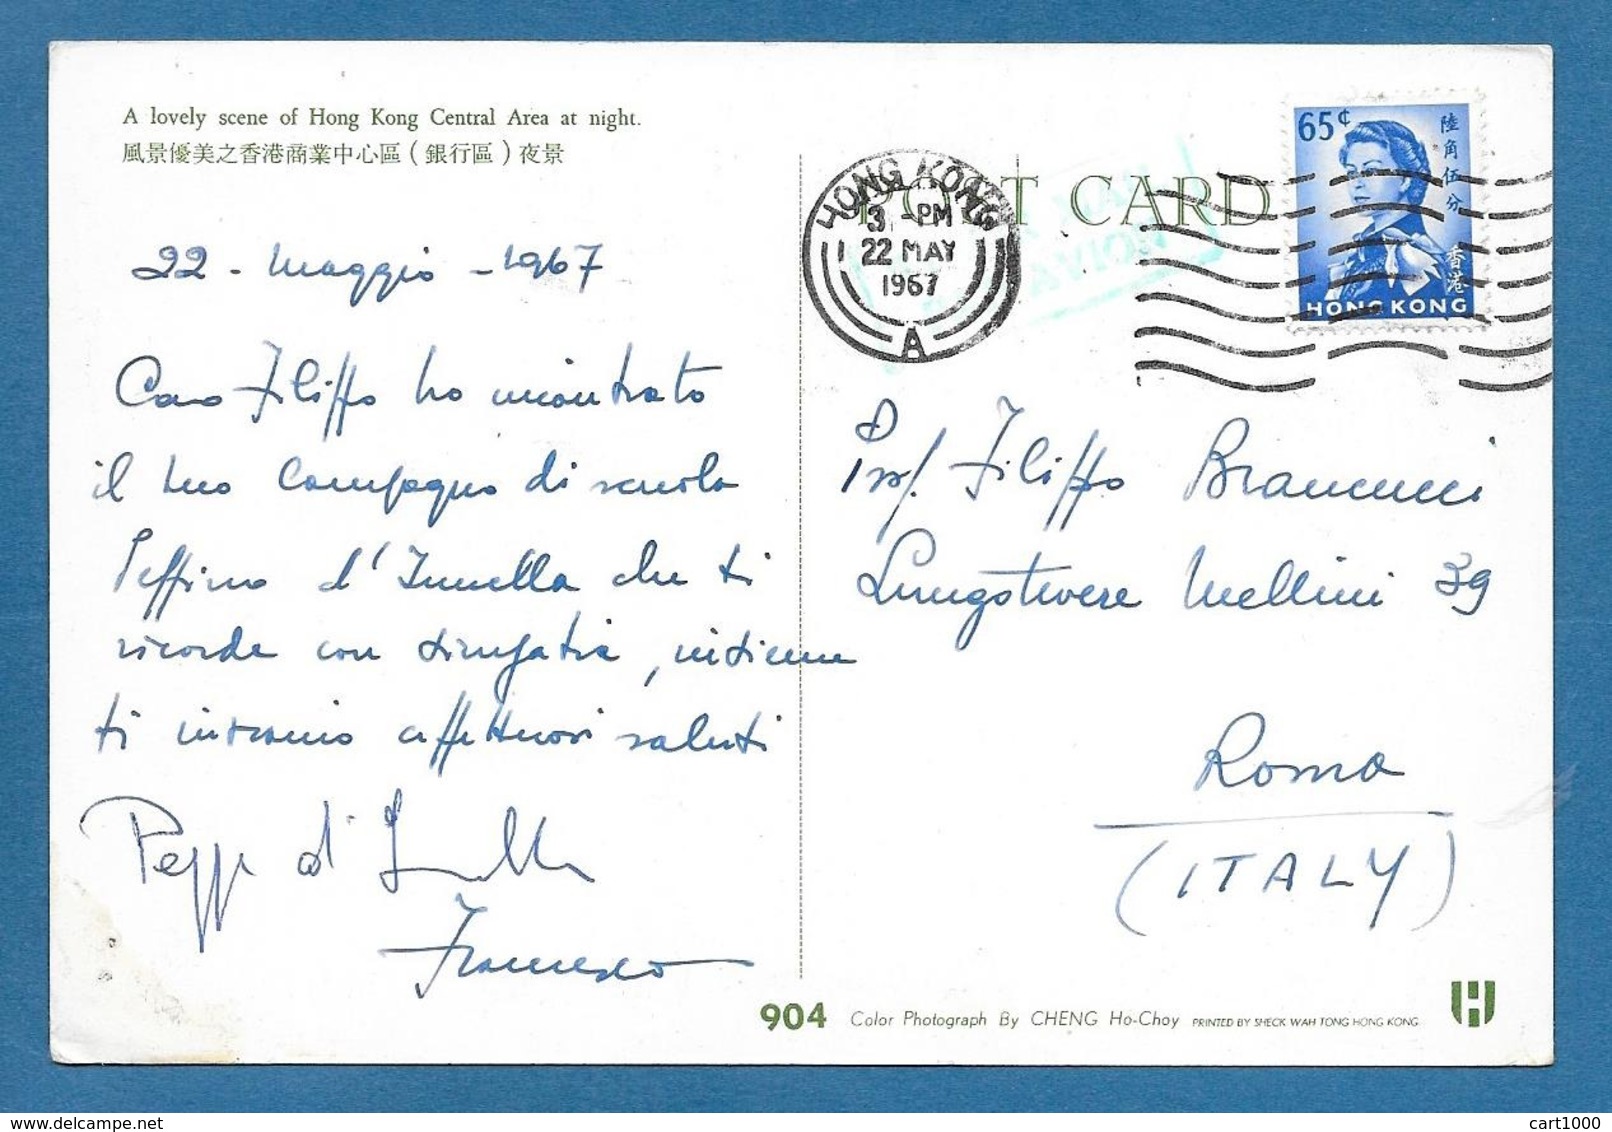 A lovely scene of Hong Kong Central Area at night.
風景優美之香港商業中心區(銀行區)夜景
22 - Maggio - 1967
Caro Filippo ho incontrato
il tuo compagno di scuola
Peppino d'Innella che ti
ricorda con simpatia, insieme
ti inviamo affettuosi saluti
Francesco
POST CARD
HONG KONG
3 -PM
22 MAY
1967
A
65¢
陸角伍分
香港
HONG KONG
Prof. Filippo Brancucci
Lungotevere Mellini 39
Roma
(ITALY)
904 Color Photograph By CHENG Ho-Choy PRINTED BY SHECK WAH TONG HONG KONG
cart1000